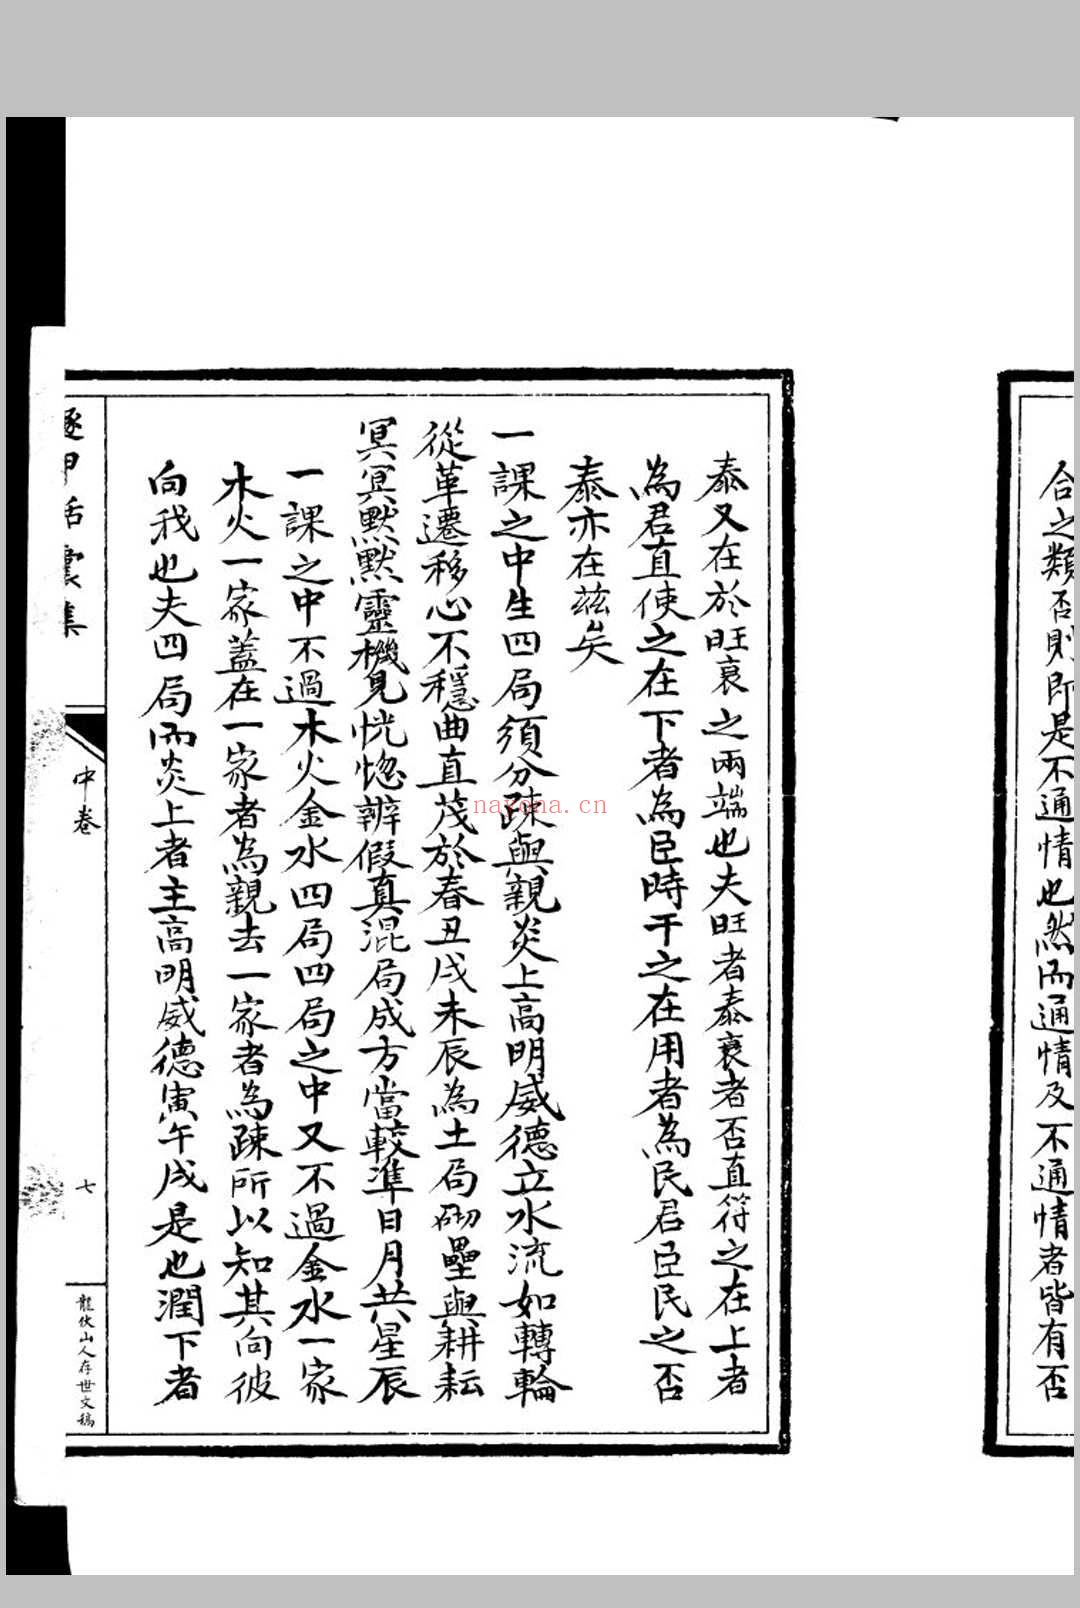 合之類否則即是不通情也然而通情及不通情者皆有否
泰又在於旺衰之兩端也夫旺者泰衰者否直符之在上者
為君直使之在下者為臣時干之在用者為民君臣民之否
泰亦在茲矣
一課之中生四局須分疎與親炎上高明威德立水流如轉輪
從革遷移心不穩曲直茂於春丑戌未辰為土局砌壘與耕耘
冥冥默默靈機見恍惚辨假真混局成方當較準日月共星辰
一課之中不過木火金水四局四局之中又不過金水一家
木火一家蓋在一家者為親去一家者為疎所以知其向彼
向我也夫四局而炎上者主高明威德寅午戌是也潤下者
中卷
七
龍伏山人存世文稿
nayona.cn